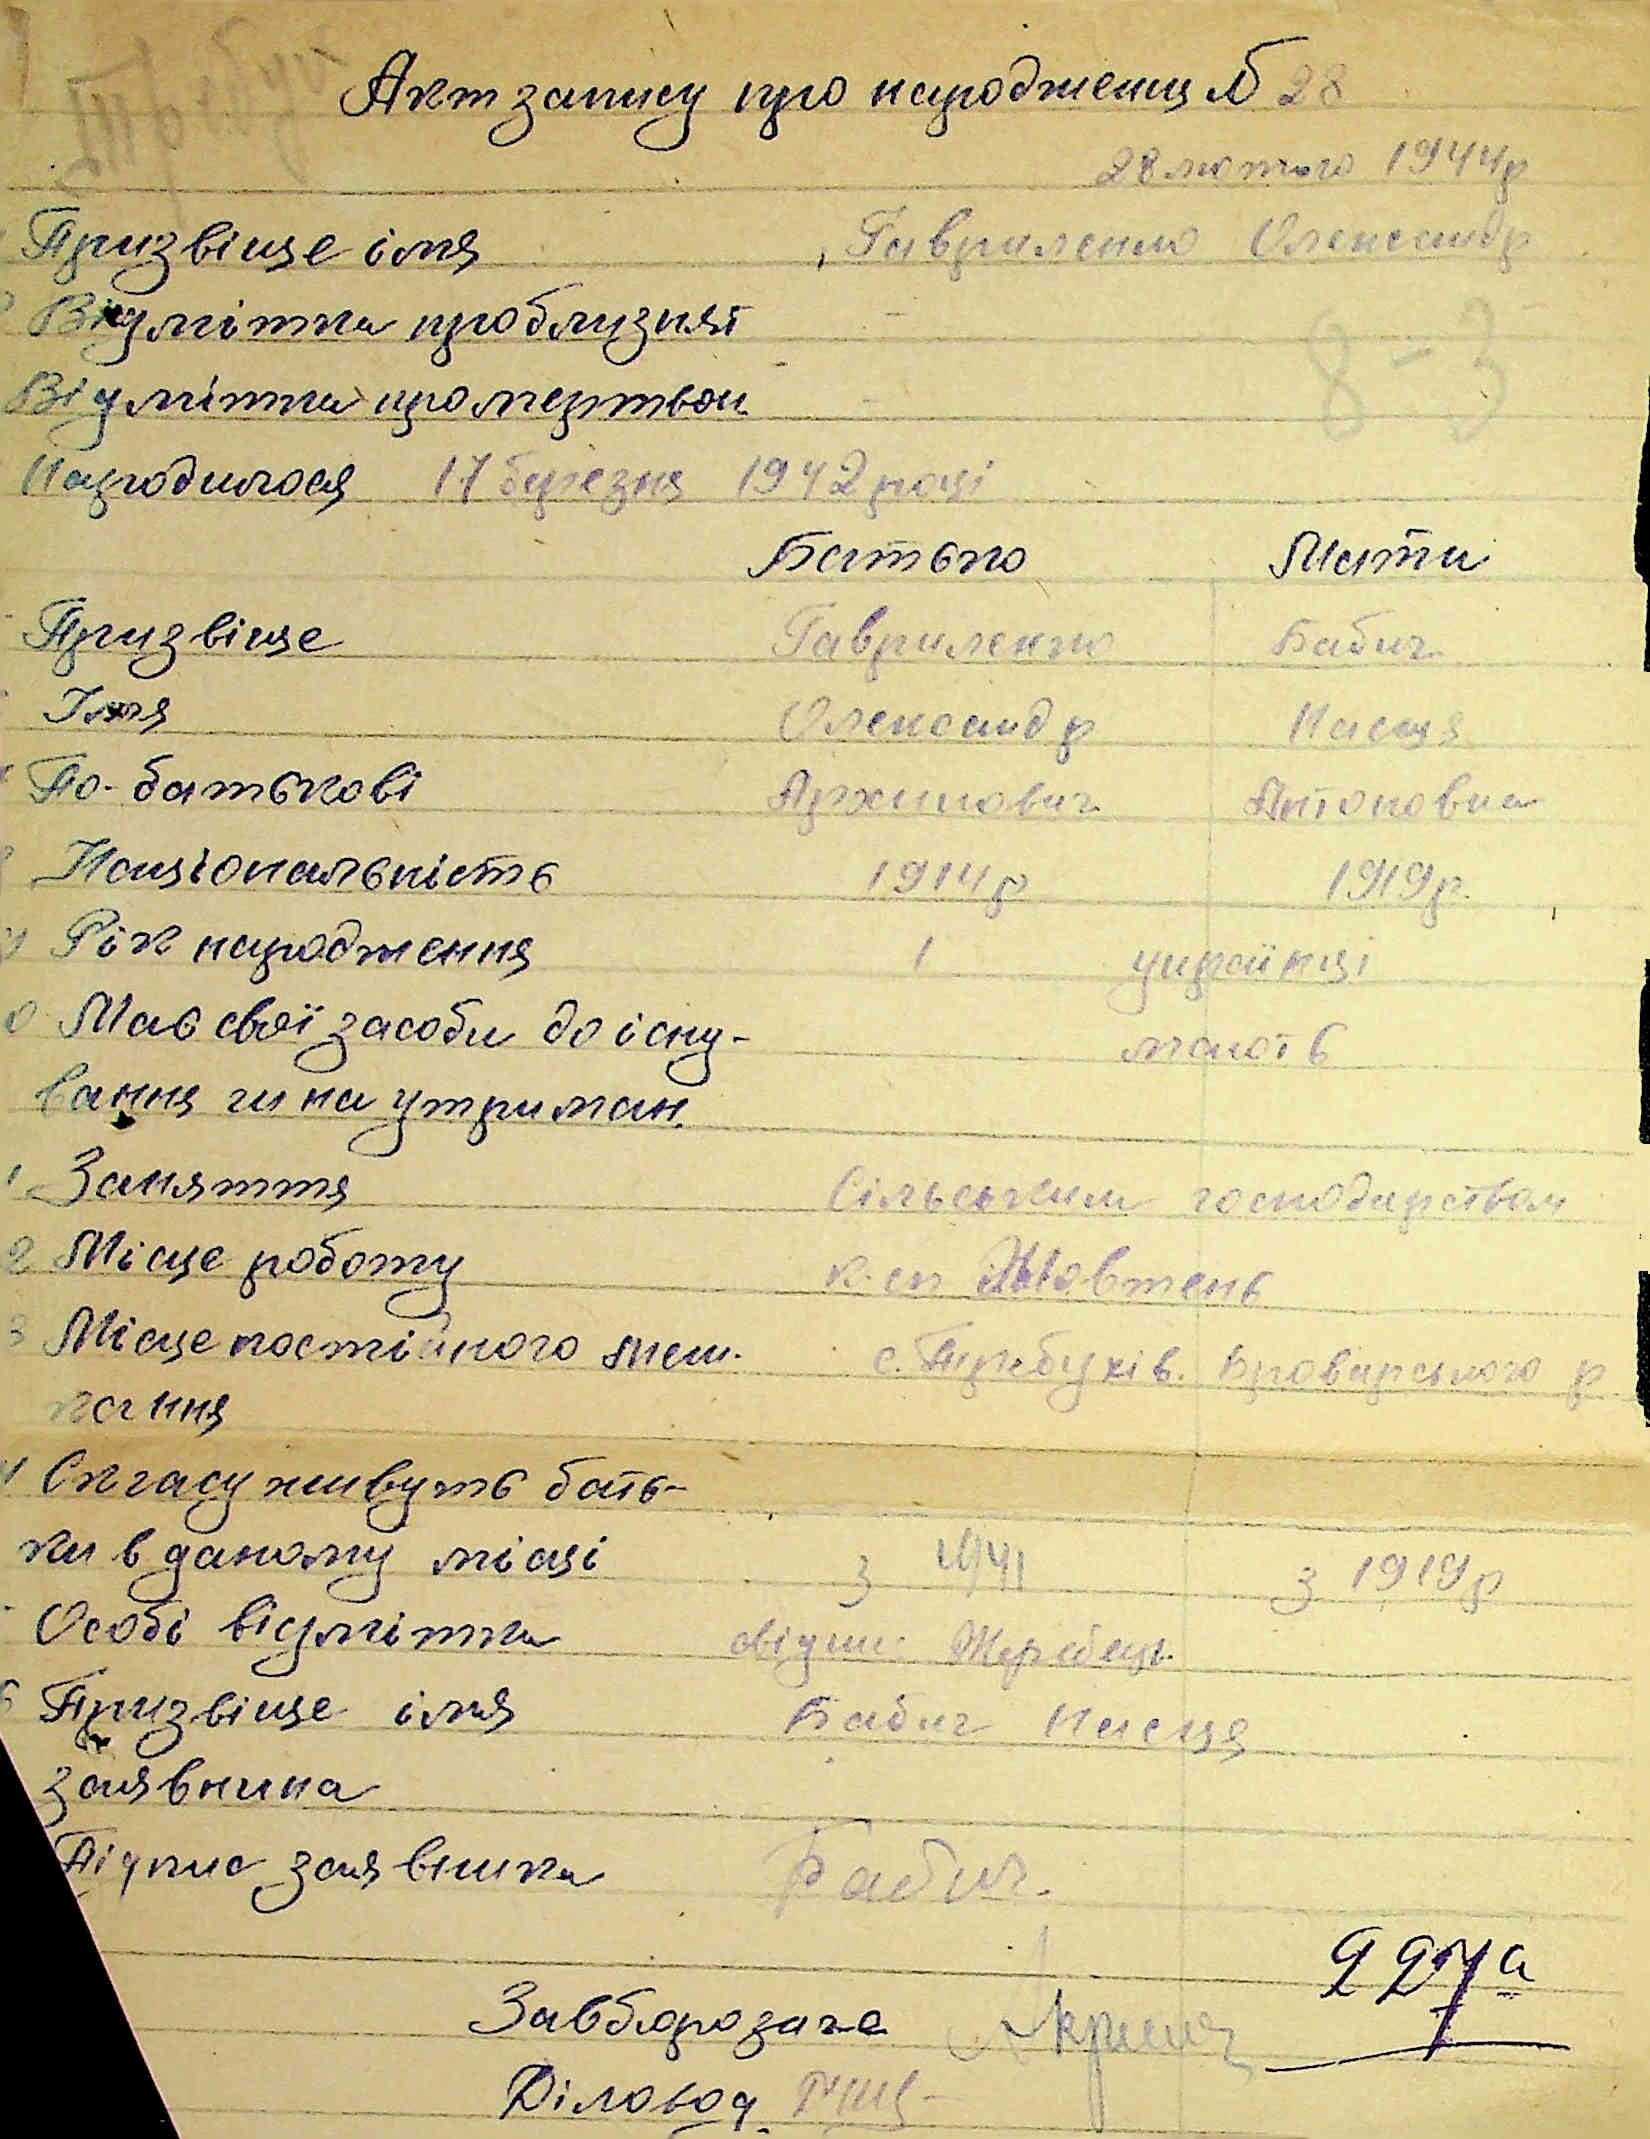 Акт запису про народження № 28
28 лютого 1944р
Призвіще імя Гавриленко Олександр
Відмітка про близнят -
8-3
Відмітка про мертвон. -
Народилося 17 березня 1942 році
Батько Мати
Призвіще Гавриленко Бабич
Імя Олександр Насця
По-батькові Архипович Антоновна
Національність 1914р 1919р.
Рік народження українці
Має свої засоби до існу-
вання чи на утриман. мають
Заняття Сільським господарством
Місце роботу к.сп Жовтень
Місце постійного меш-
кання с. Требухів. Броварського р
Скчасу живуть бать-
ки в даному місці з 1941 з 1919р
Особі відмітка свідки: Жеребець.
Призвіще імя Бабич Насця
заявника
Підпис заявника Бабич.
227а
Завбюрозагсе
Діловод